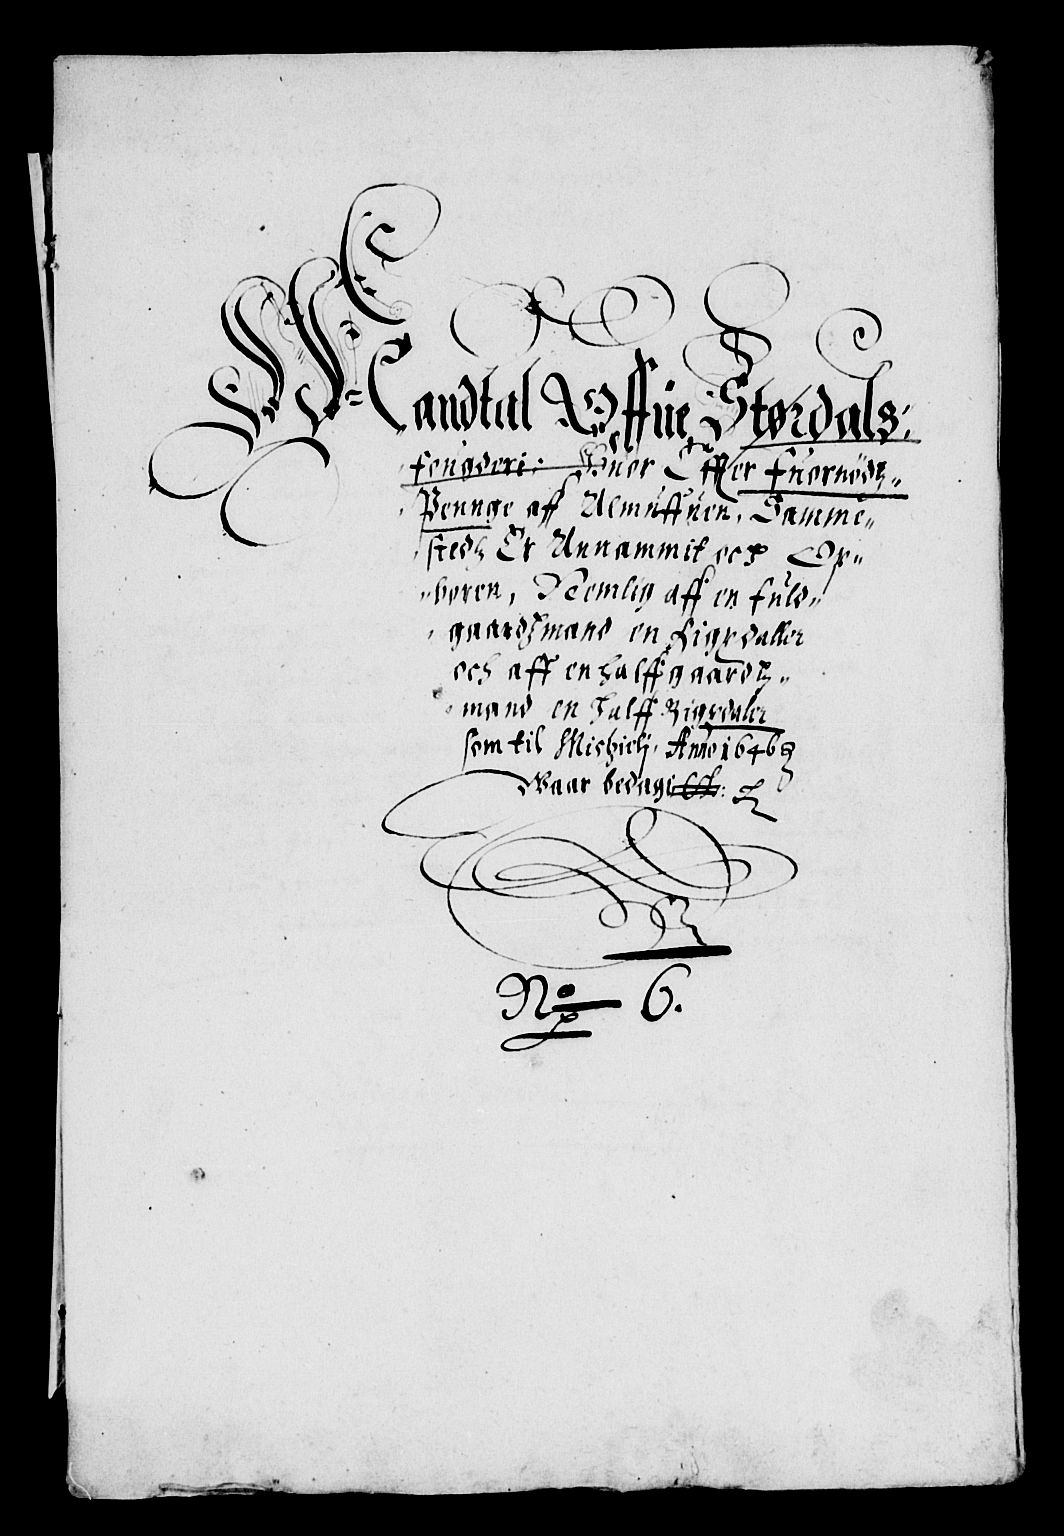 Mandtal Offue Størdals:
fougderi. Huor Effter fuornødtz
Pennge aff Almuffuen, Samme-
stedtz Er Annammit och Op-
boren, Nemlig aff en fuld-
gaardtzmand en Rigsdaller
och aff en halff gaardtz-
mand en halff Rigsdaler
som til Michielj. Anno 1646
Waar bedagit
No 6.